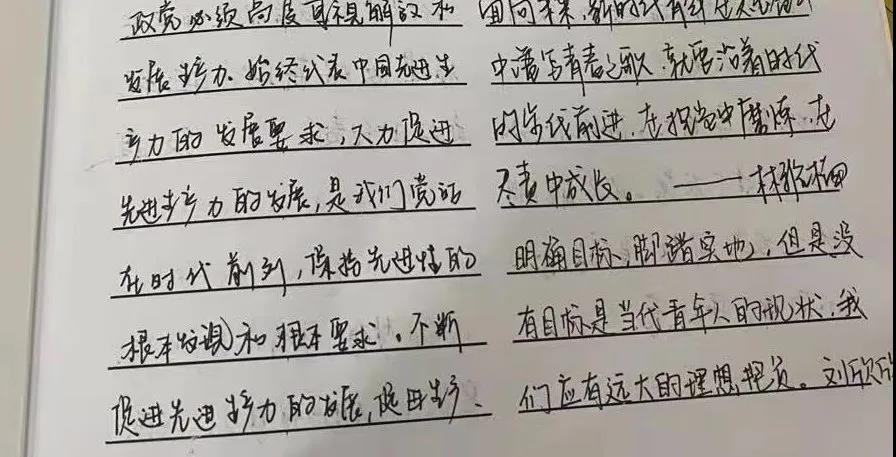 政党必须高度重视解放和
发展生产力,始终代表中国先进生
产力的发展要求,大力促进
先进生产力的发展,是我们党站
在时代前列,保持先进性的
根本体现和根本要求。不断
促进先进生产力的发展,促进生产
面向未来,新时代青年
中谱写青春之歌,就要沿着时代
的步伐前进,在担当中磨炼,在
尽责中成长。——林
明确目标,脚踏实地,但是没
有目标是当代青年人的现状,我
们应有远大的理想抱负。刘欣欣